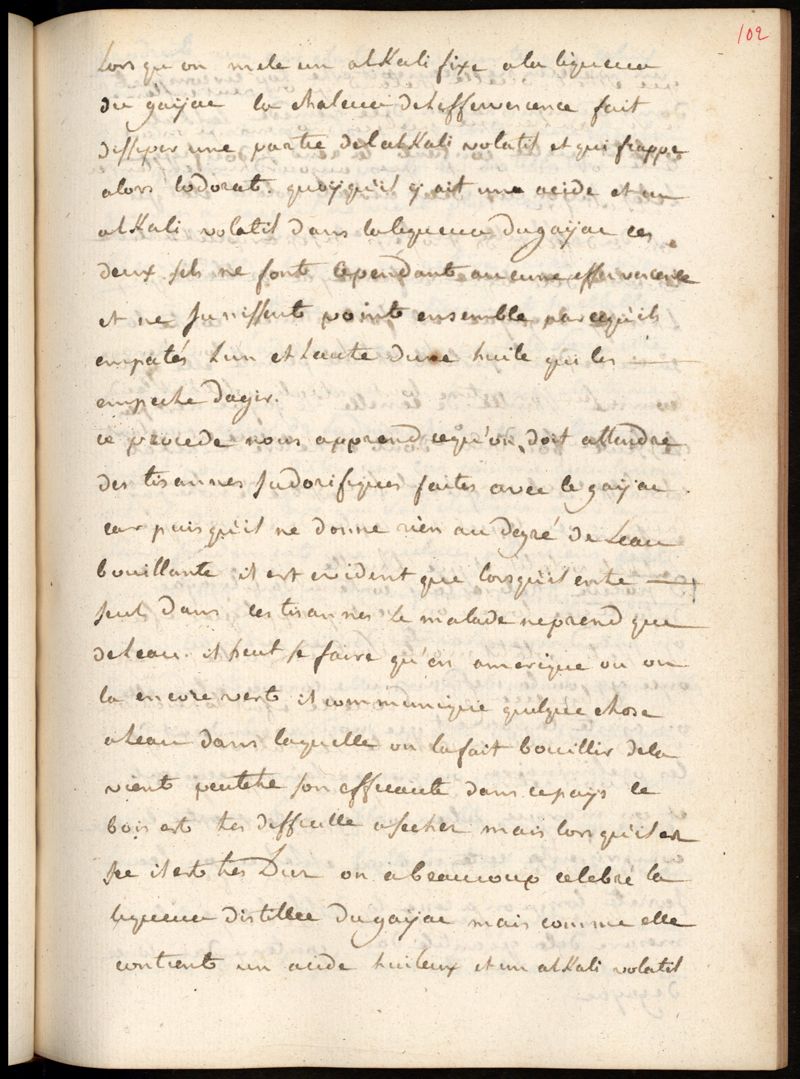 102
Lorsqu on mele un alKali fixe a la liqueur
du gaÿac la chaleur de leffervescence fait
dissiper une partie delalKali volatil et qui frappe
alors lodorat. quoyqu'il y ait une acide et un
alKali volatil dans la liqueur du gaÿac ces
deux sels ne font cependant aucune effervescence
et ne sunissent point ensemble parcequ'ils
empatés Lun et Lautre dune huile qui les
empeche dagir.
ce procede nous apprend cequ'on doit attendre
des tisannes sudorifiques faites avec le gaÿac
car puisqu'il ne donne rien au degré de Leau
bouillante il est evident que lorsquil entre
seul dans ces tisannes le malade neprend que
deleau. il peut se faire qu'en amerique ou on
la encore vert il communique quelque chose
aleau dans laquelle on lafait bouillir dela
vient peutetre son efficacité dans cepays ce
bois est tres difficille a secher mais lorsquil est
sec il est tres Dur on a beaucoup celebré la
liqueur distillée du gaÿac mais comme elle
contient un acide huileux et un alKali volatil